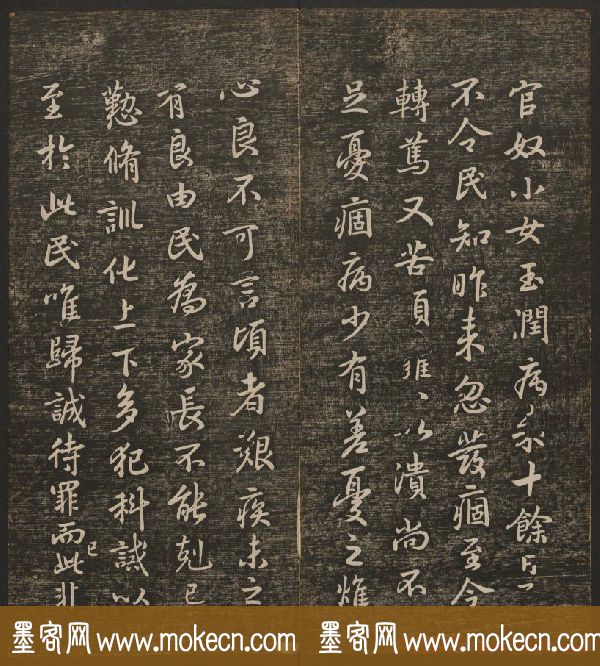 官奴小女玉潤病來十餘日
不令民知昨來忽發痼至今
轉篤又苦頭以潰尚不
足憂痼病少有差憂之燋
心良不可言頃者艱疾未之
有良由民為家長不能剋己
懃脩訓化上下多犯科誡以
至於此民唯歸誠待罪而此非
已
墨客网 www.mokecn.com 墨客网 www.mokecn.com